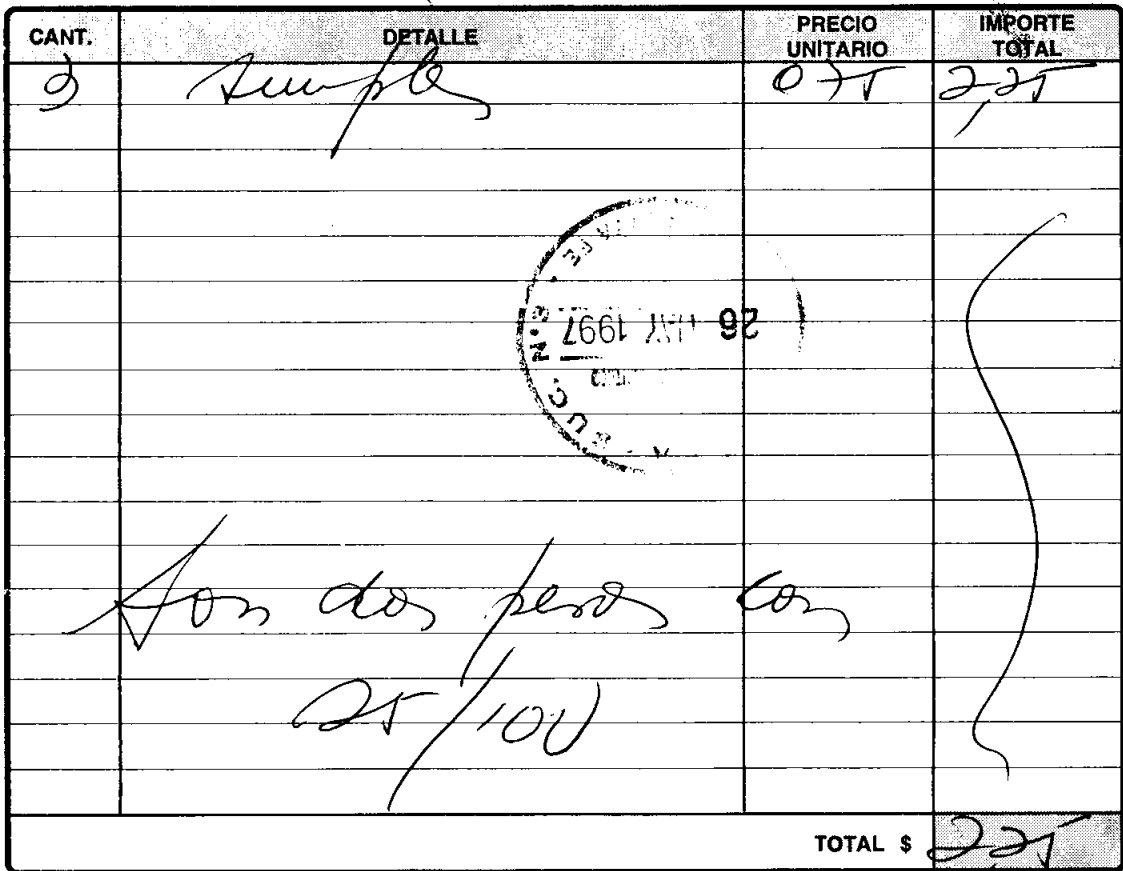 CANT. DETALLE PRECIO UNITARIO IMPORTE TOTAL
3 simples 0,75 2,25
26 MAY 1997
SUC. N
Son dos pesos con
25/100
TOTAL $ 2,25